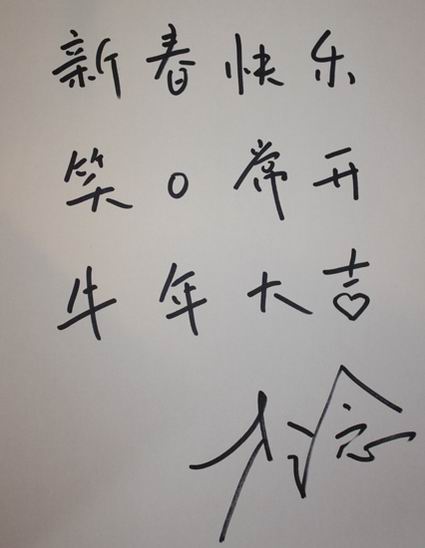 新春快乐
笑口常开
牛年大吉